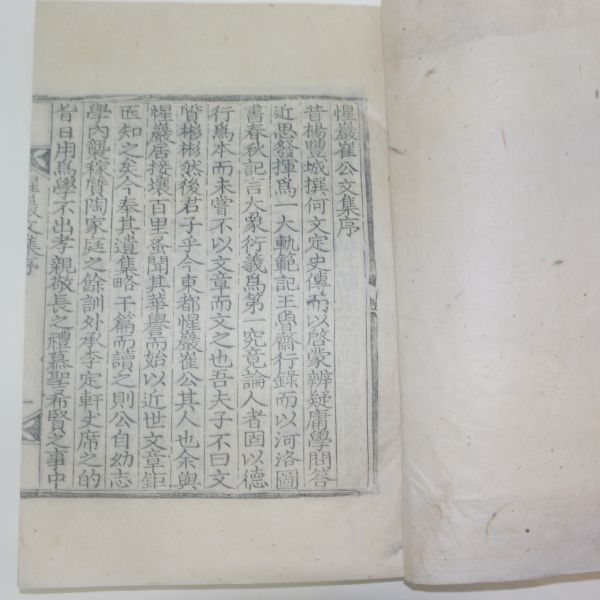 惺巖崔公文集序
昔楊豐城撰何文定史傳而以啓蒙辨疑庸學問答
近思發揮爲一大軌範記王魯齋行錄而以河洛圖
書春秋記言大象衍義爲第一究竟論人者固以德
行爲本而未嘗不以文章而文之也吾夫子不曰文
質彬彬然後君子乎今東都惺巖崔公其人也余與
惺巖居接壤百里蚤聞其華譽而始以近世文章鉅
匠知之矣今奉其遺集略干篇而讀之則公自幼志
學內襲稼賁陶家庭之餘訓外承李定軒丈席之的
旨日用爲學不出孝親敬長之禮慕聖希賢之事中
惺巖文集序
一